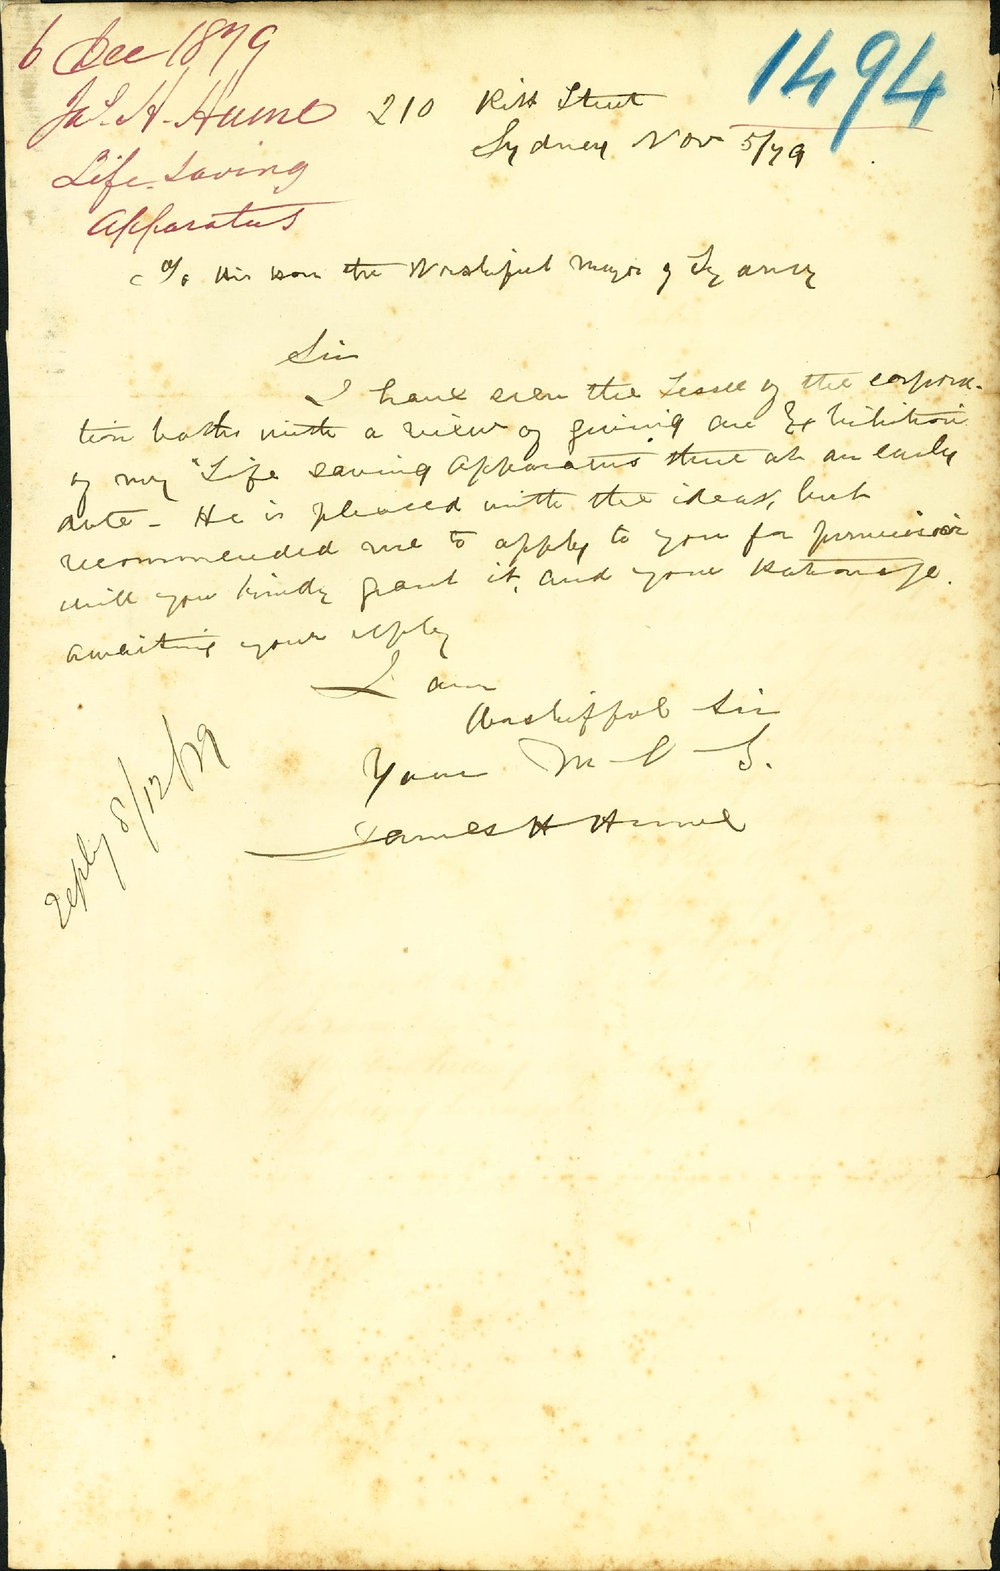 6 Dec 1879
Jas. H. Hume
Life Saving
Apparatus
1494
210 Pitt Street
Sydney Nov 5/79
To His Hon the Worshipful Mayor of Sydney
Sir
I have seen the Lessee of the corpora-
tion baths with a view of giving an Exhibition
of my "Life saving Apparatus" there at an early
date - He is pleased with the idea, but
recommended me to apply to you for permission
will you kindly grant it, and your Patronage.
awaiting your reply
I am
Worshipful Sir
Your M O S.
James H Hume
reply 8/12/79